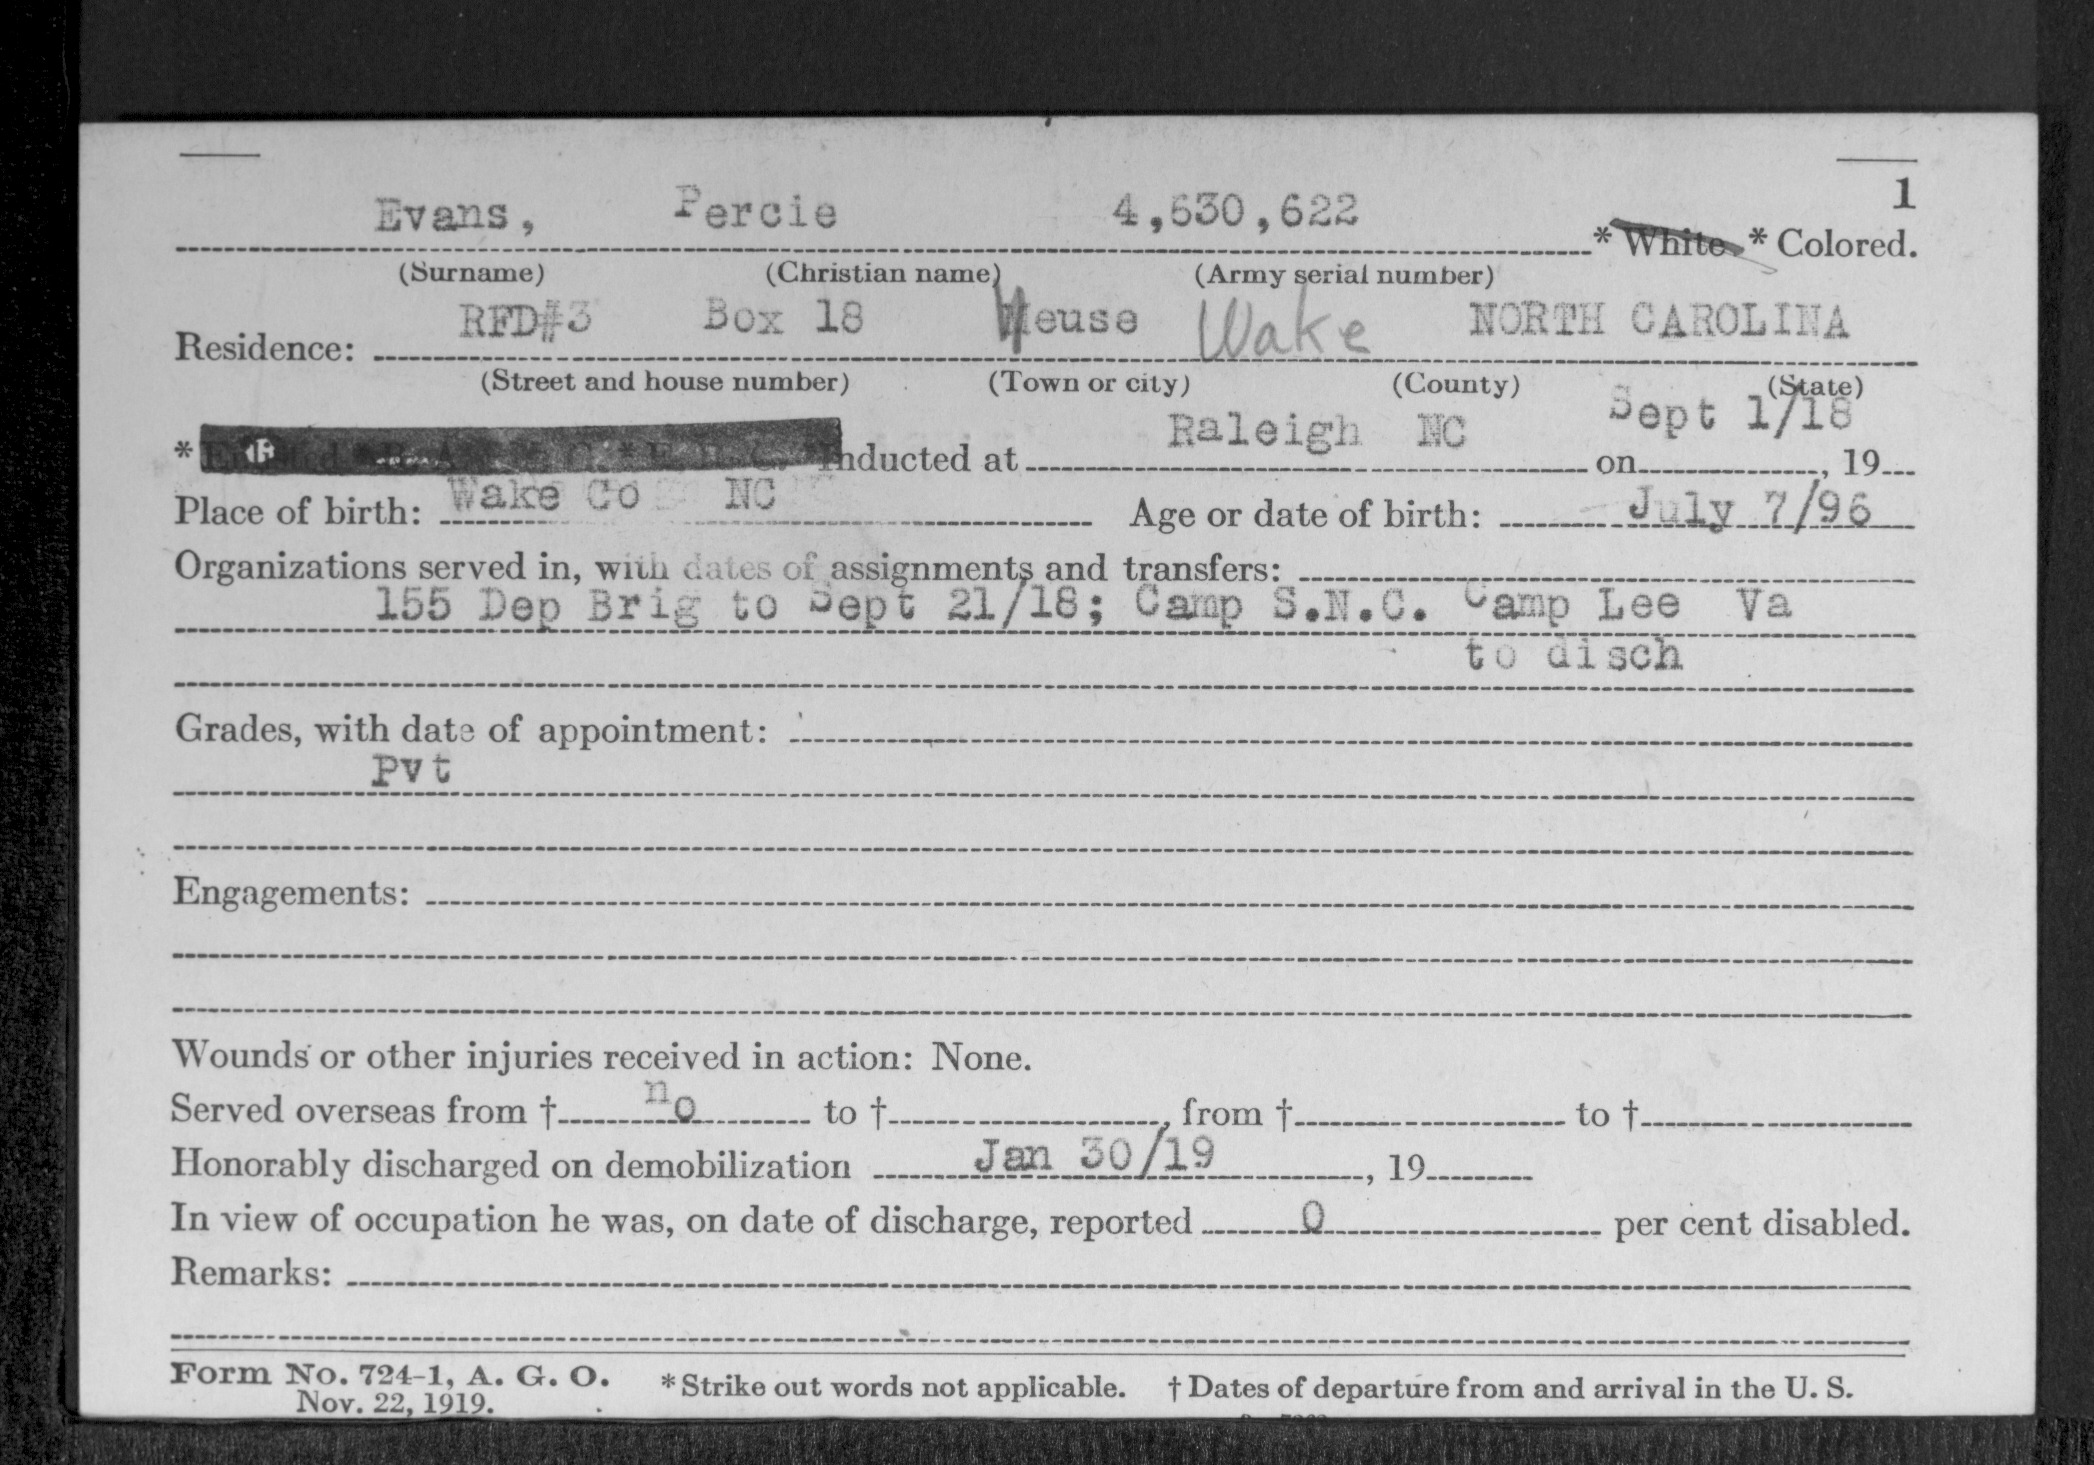 1
Evans, Percie 4,630,622 * White * Colored.
(Surname) (Christian name) (Army serial number)
Residence: RFD#3 Box 18 Neuse Wake NORTH CAROLINA
(Street and house number) (Town or city) (County) (State)
* Inducted at Raleigh NC on Sept 1/18, 19
Place of birth: Wake Co NC Age or date of birth: July 7/96
Organizations served in, with dates of assignments and transfers:
155 Dep Brig to Sept 21/18; Camp S.N.C. Camp Lee Va
to disch
Grades, with date of appointment:
Pvt
Engagements:
Wounds or other injuries received in action: None.
Served overseas from † no to †, from † to †
Honorably discharged on demobilization Jan 30/19, 19
In view of occupation he was, on date of discharge, reported 0 per cent disabled.
Remarks:
Form No. 724-1, A. G. O. * Strike out words not applicable. † Dates of departure from and arrival in the U. S.
Nov. 22, 1919.